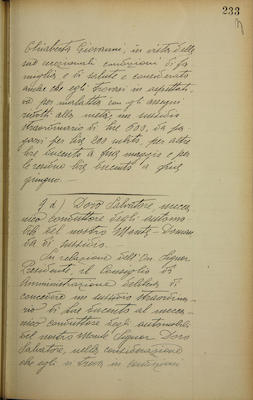 233
Chiaberta Giovanni, in vista delle
sue eccezionali condizioni di fa
miglia e di salute e considerato
anche che egli trovasi in aspettati
va per malattia con gli assegni
ridotti alla metà, un sussidio
straordinario di lire 600, da pa
garsi per lire 200 subito, per altre
lire duecento a fine maggio e per
le residue lire duecento a fine
giugno.
9 d) Doro Salvatore mecca
nico conduttore degli automo
bili del nostro Monte - Doman
da di sussidio.
In relazione dell'On. Signor
Presidente, il Consiglio di
Amministrazione delibera di
concedere un sussidio straordina
rio di lire duecento al mecca
nico conduttore degli automobili
del nostro Monte Signor Doro
Salvatore, nella considerazione
che egli si trova in condizioni